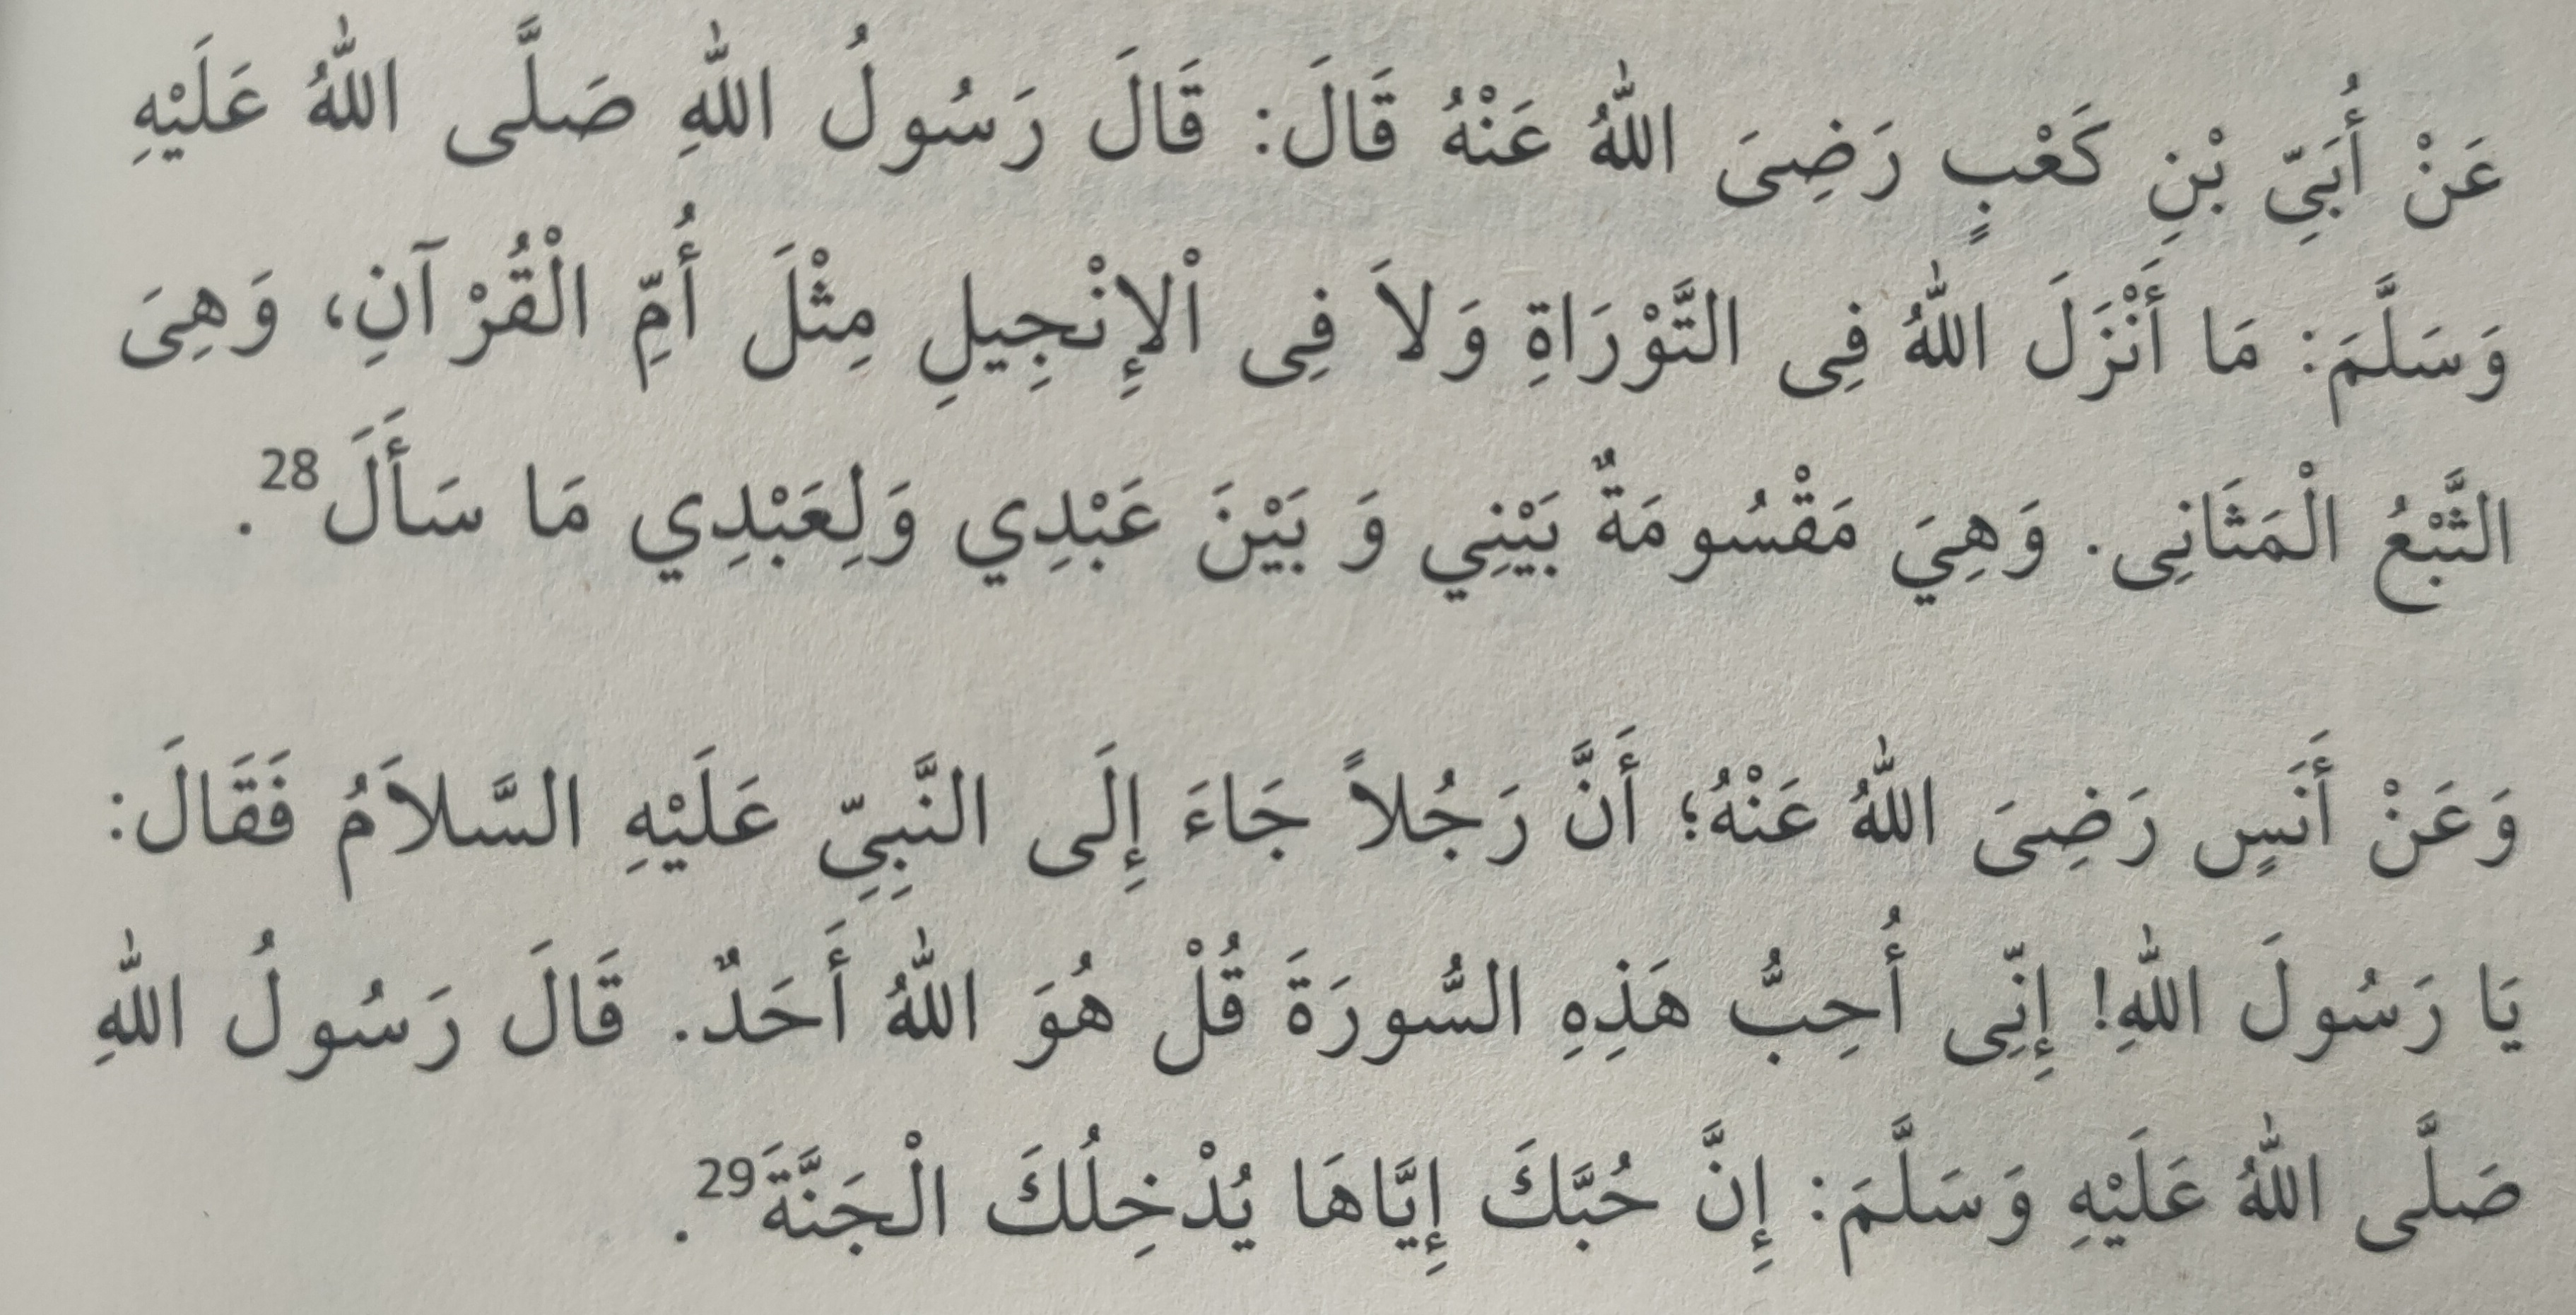 عَنْ أُبَيِّ بْنِ كَعْبٍ رَضِىَ اللّٰهُ عَنْهُ قَالَ: قَالَ رَسُولُ اللّٰهِ صَلَّى اللّٰهُ عَلَيْهِ
وَسَلَّمَ: مَا أَنْزَلَ اللّٰهُ فِى التَّوْرَاةِ وَلاَ فِى اْلإِنْجِيلِ مِثْلَ أُمِّ الْقُرْآنِ، وَهِىَ
الثَّبْعُ الْمَثَانِى. وَهِيَ مَقْسُومَةٌ بَيْنِي وَ بَيْنَ عَبْدِي وَلِعَبْدِي مَا سَأَلَ28.
وَعَنْ أَنَسٍ رَضِىَ اللّٰهُ عَنْهُ؛ أَنَّ رَجُلاً جَاءَ إِلَى النَّبِيِّ عَلَيْهِ السَّلاَمُ فَقَالَ:
يَا رَسُولَ اللّٰهِ! إِنِّى أُحِبُّ هَذِهِ السُّورَةَ قُلْ هُوَ اللّٰهُ أَحَدٌ. قَالَ رَسُولُ اللّٰهِ
صَلَّى اللّٰهُ عَلَيْهِ وَسَلَّمَ: إِنَّ حُبَّكَ إِيَّاهَا يُدْخِلُكَ الْجَنَّةَ29.